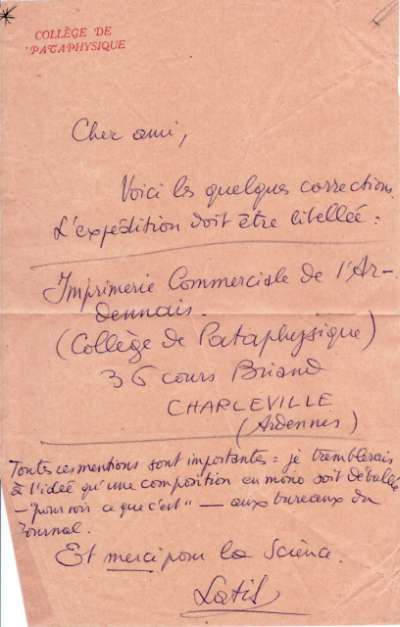 COLLÈGE DE
'PATAPHYSIQUE
Cher ami,
Voici les quelques corrections.
L'expédition doit être libellée :
Imprimerie Commerciale de l'Ar-
dennais.
(Collège de Pataphysique)
36 cours Briand
CHARLEVILLE
(Ardennes)
Toutes ces mentions sont importantes : je tremblerais
à l'idée qu'une composition en mono soit déballée
– "pour voir ce que c'est" – aux bureaux du
Journal.
Et merci pour la Science.
Latis